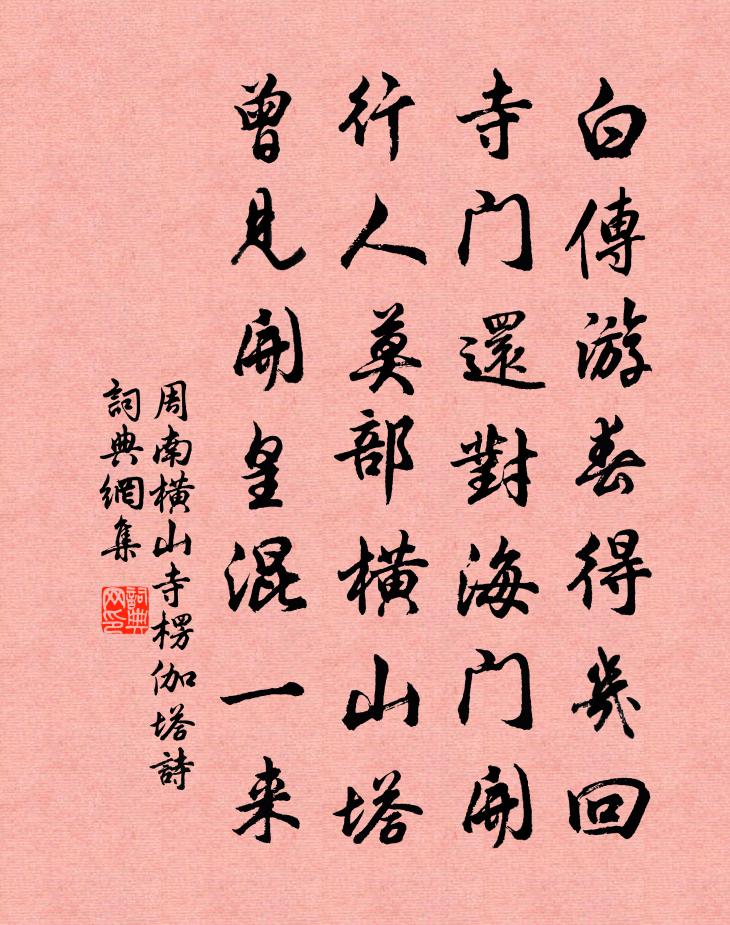 白傅游春得幾回
寺門還對海門開
行人莫部橫山塔
曾見開皇混一来
周南橫山寺楞伽塔詩
詞典網集
詞典网印